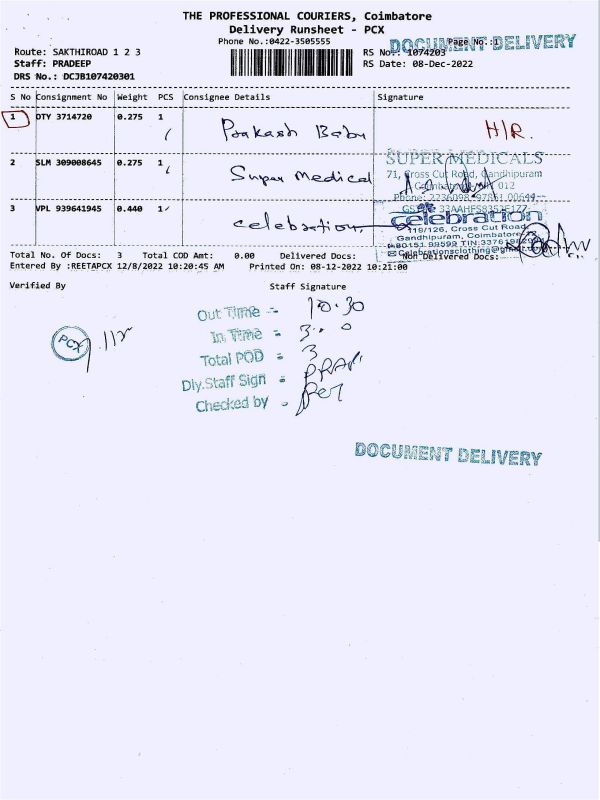 THE PROFESSIONAL COURIERS, Coimbatore
Delivery Runsheet - PCX
Phone No.:0422-3505555
DOCUMENT DELIVERY
Page No.:1
Route: SAKTHIROAD 1 2 3
RS No.: 1074203
Staff: PRADEEP
RS Date: 08-Dec-2022
DRS No.: DCJB107420301
S No Consignment No Weight PCS Consignee Details Signature
1 DTY 3714720 0.275 1 Prakash Babu H/R.
2 SLM 309008645 0.275 1 Super Medical
SUPER MEDICALS
71, Cross Cut Road, Gandhipuram
3 VPL 939641945 0.440 1 celebration
celebration
118/126, Cross Cut Road
Gandhipuram, Coimbatore
Celebrationsclothing@
Total No. Of Docs: 3 Total COD Amt: 0.00 Delivered Docs: Non Delivered Docs:
Entered By :REETAPCX 12/8/2022 10:20:45 AM Printed On: 08-12-2022 10:21:00
Verified By Staff Signature
Out Time - 10.30
In Time =
Total POD = 3
Dly.Staff Sign =
Checked by -
PCX
DOCUMENT DELIVERY